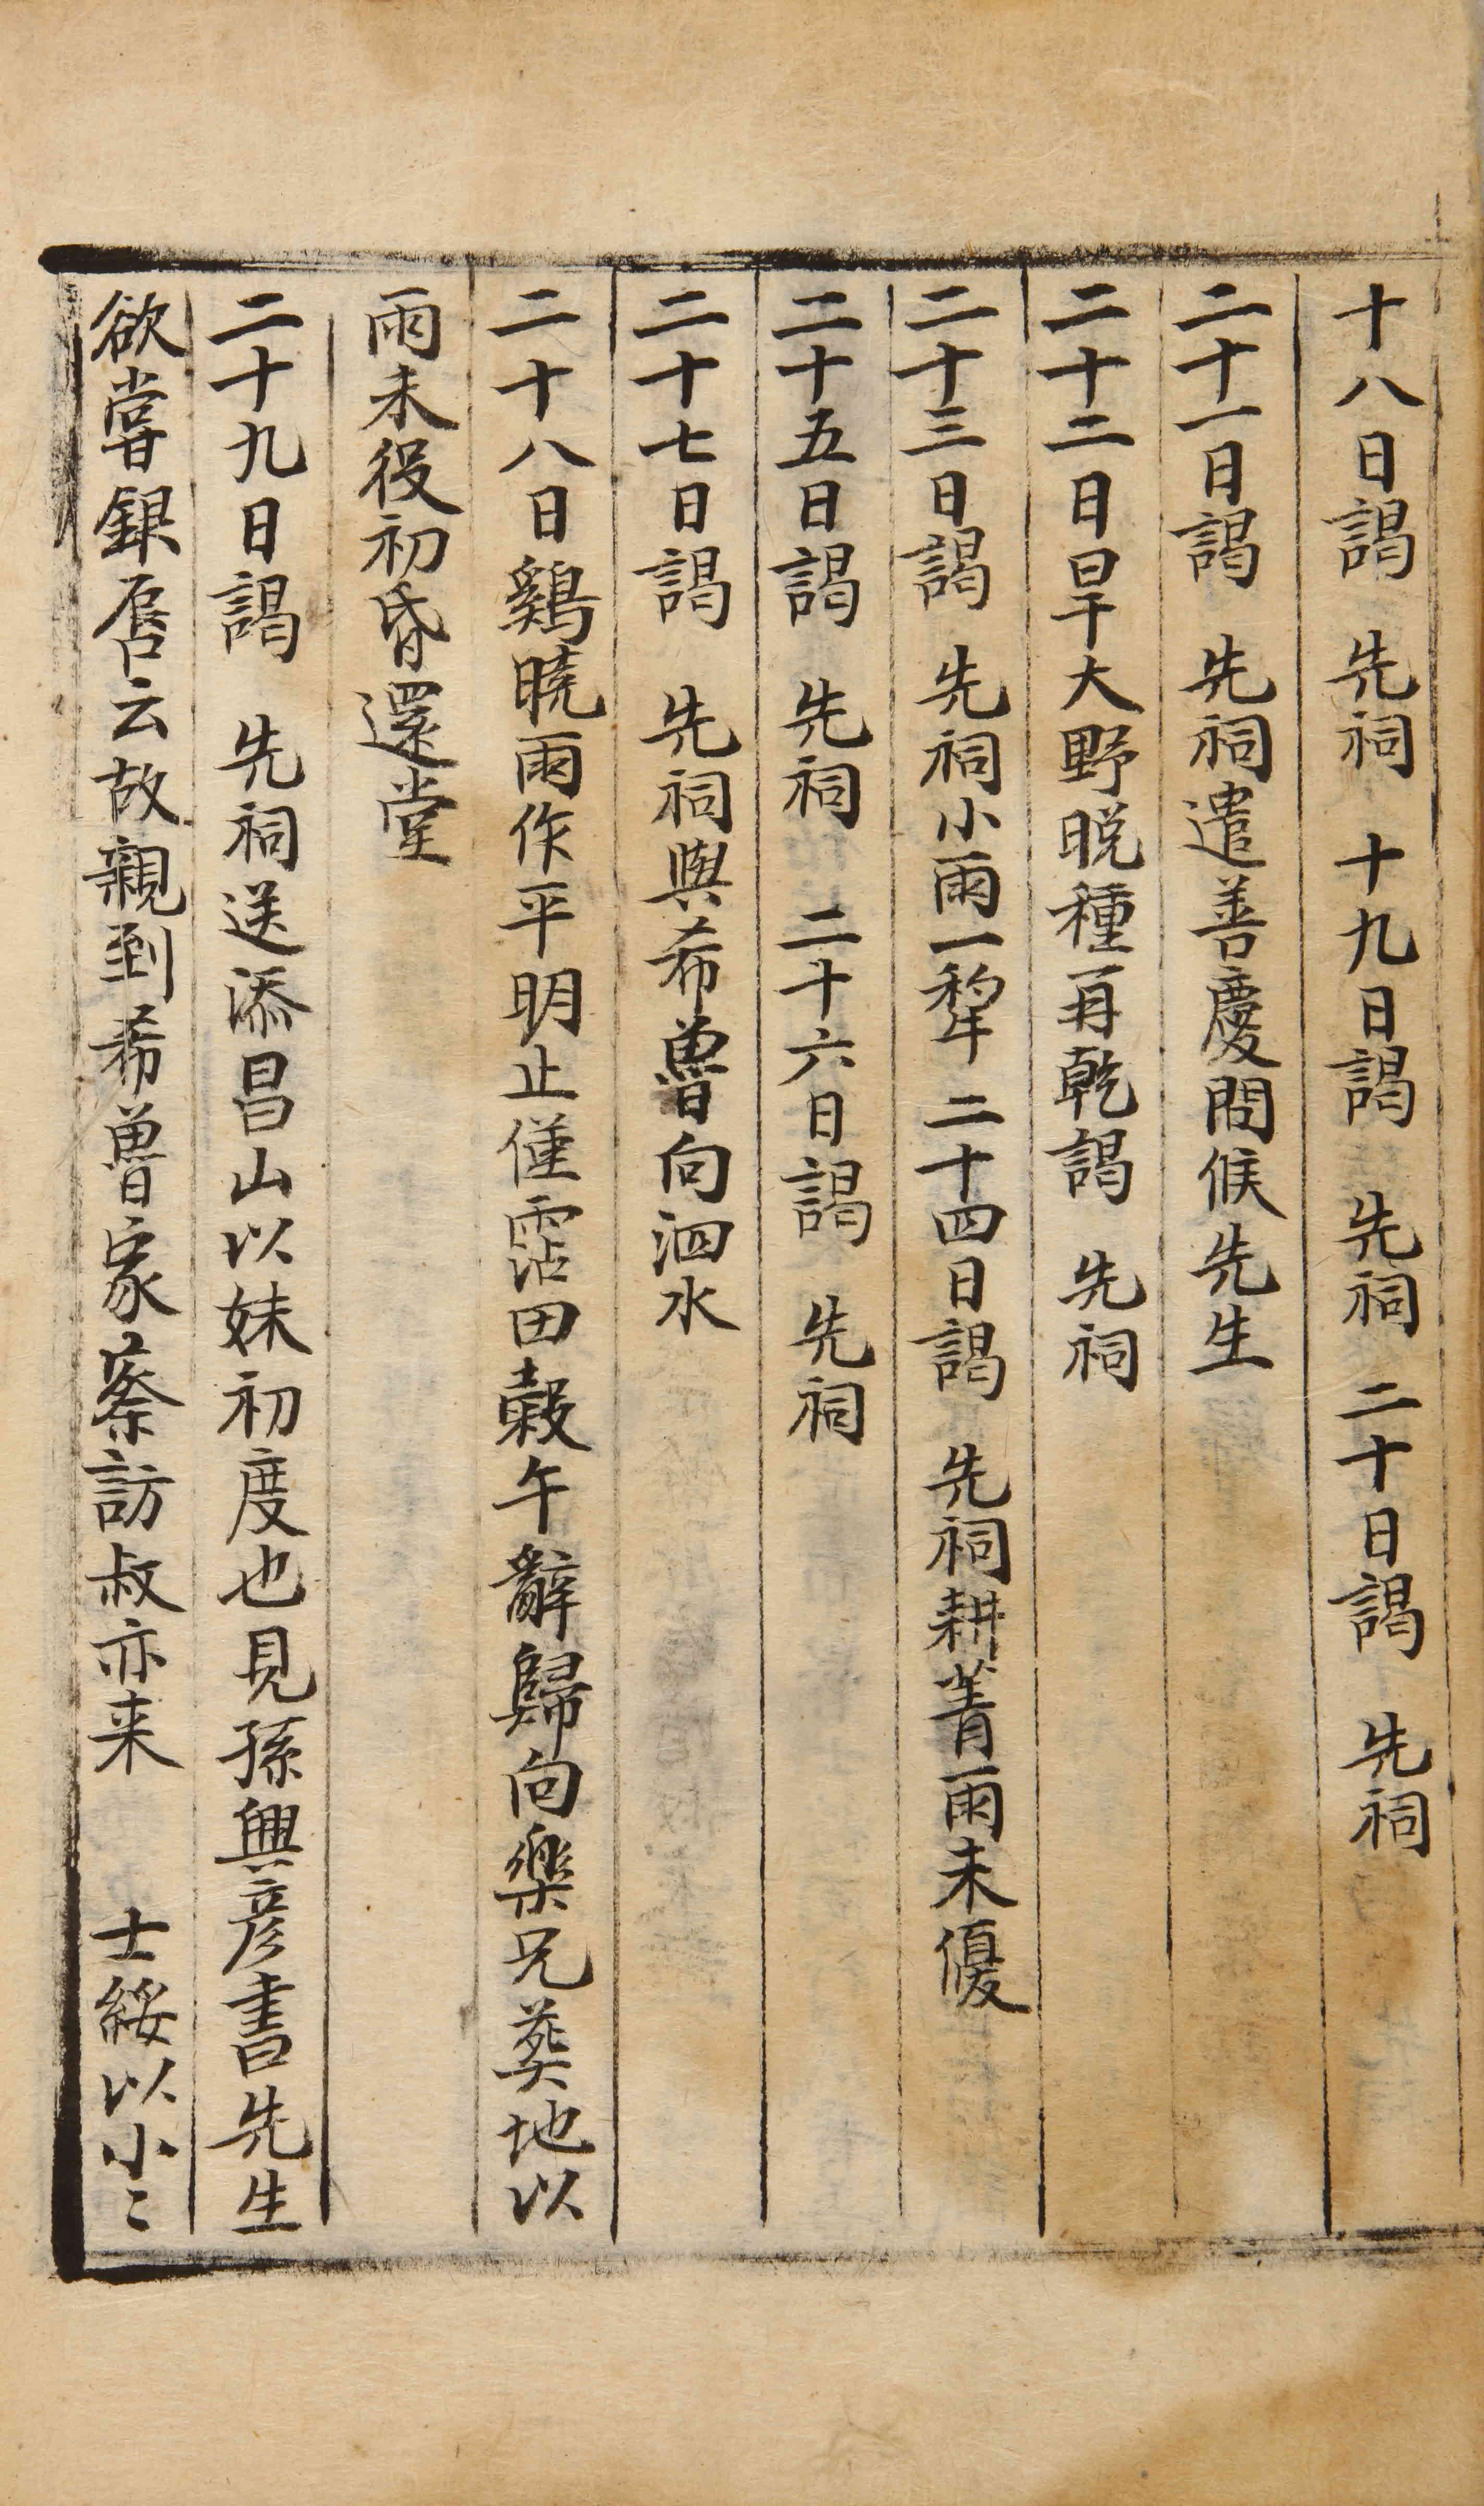 十八日謁　先祠　十九日謁　先祠　二十日謁　先祠
二十一日謁　先祠遣善慶問候先生
二十二日旱大野晩種再乾謁　先祠
二十三日謁　先祠小雨一犂　二十四日謁　先祠耕菁雨未優
二十五日謁　先祠　二十六日謁　先祠
二十七日謁　先祠與希魯向泗水
二十八日鷄曉雨作平明止僅霑田穀午辭歸向樂兄葬地以
雨未役初昏還堂
二十九日謁　先祠送添昌山以妹初度也見孫興彦書先生
欲嘗銀唇云故親到希魯家蔡訪叔亦来　士綏以小〻